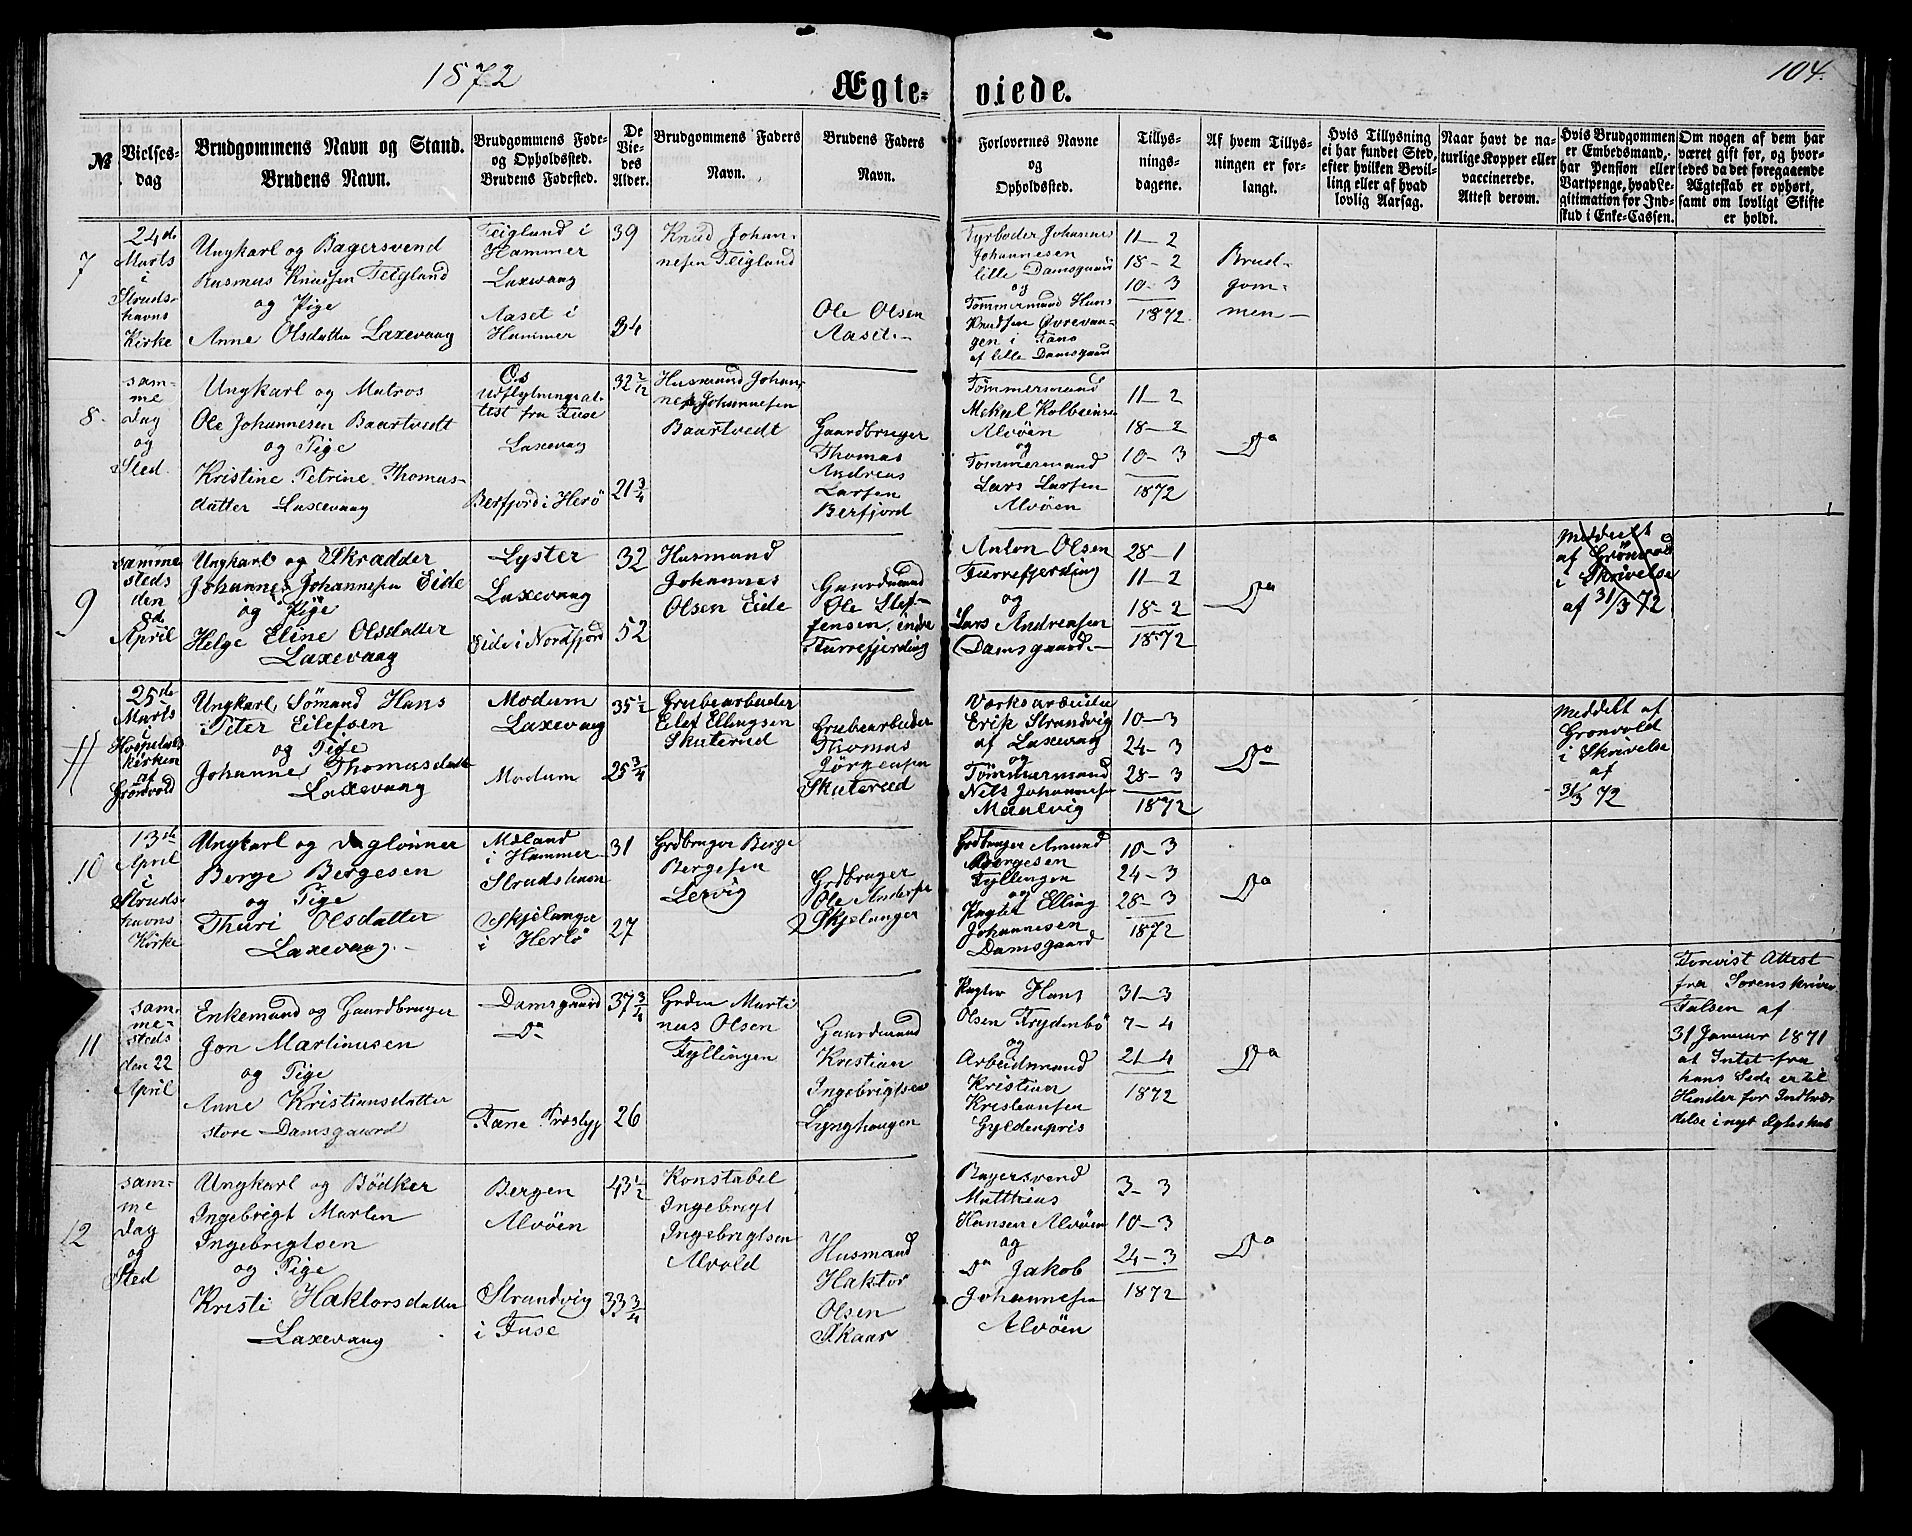 1872
Ægte-
viede.
104.
№
Vielses-
dag
Brudgommens Navn og Stand.
Brudens Navn.
Brudgommens Føde-
og Opholdssted.
Brudens Fødested.
De
Vie-
des
Alder.
Brudgommens Faders
Navn.
Brudens Faders
Navn.
Forlovernes Navne
og
Opholdssted.
Tillys-
nings-
dagene.
Af hvem Tillys-
ningen er for-
langt.
Hvis Tillysning
ei har fundet Sted,
efter hvilken Bevil-
ling eller af hvad
lovlig Aarsag.
Naar havt de na-
turlige Kopper eller
vaccinerede.
Attest derom.
Hvis Brudgommen
er Embedsmand,
har Pension eller
Vartpenge, hvad Le-
gitimation for Ind-
skud i Enke-Cassen.
Om nogen af dem har
været gift før, og hvor-
ledes da det foregaaende
Ægteskab er ophørt,
samt om lovligt Skifte
er holdt.
7
24de
Marts
i
Struds-
havns
Kirke
Ungkarl og Bagersvend
Rasmus Knudsen Teigland
og Pige
Anne Olsdatter Laxevaag
Teigland i
Hammer
Laxevaag
Aaset i
Hammer
39
34
Knud Johan-
nesen Teigland
Ole Olsen
Aaset
Fyrbøder Johannes
Johannesen
lille Damsgaard
og
Tømmermand Hans
Knudsen Øvrevaa-
gen i Fane
af lille Damsgaard
11-2
18-2
10-3
1872
Brud-
gom-
men
8.
sam-
me
Dag
og
Sted.
Ungkarl og Matros
Ole Johannesen Baartvedt
og Pige
Kristine Petrine Thomas-
datter Laxevaag
Os
Udflytningsat-
test fra Fuse
Laxevaag
Berfjord i Herö
32 2/12
21 3/4
Husmand Johan-
nes Johannesen
Baartvedt
Gaardbruger
Thomas
Andreas
Larsen
Berfjord
Tømmermand
Mikal Kolbeinse
Alvöen
og
Tømmermand
Lars Larsen
Alvöen
11-2
18-2
10-3
1872
Do
9
samme
steds
den
8de
April
Ungkarl og Skrædder
Johannes Johannesen Eide
og Pige
Helge Eline Olsdatter
Laxevaag
Lyster
Laxevaag
Eide i Nordfjord
32
52
Husmand
Johannes
Olsen Eide
Gaardmand
Ole Stef-
fensen, indre
Furrefjerding
Anton Olsen
Furrefjerding
og
Lars Andreasen
Damsgaard
28-1
11-2
18-2
1872
Do
Meddelt
af Grönvold
i Skrivelse
af 31/3 72
25de
Marts
i
Hospitals
kirken
af
Grönvold
Ungkarl, Sömand Hans
Peter Eilefsen
og Pige
Johanne Thomasdatter
Laxevaag
Modum
Laxevaag
Modum
35 1/2
25 3/4
Grubearbeider
Eilef Ellingsen
Skuterud
Grubearbeider
Thomas
Jörgensen
Skuterud
Værksarbeider
Erik Strandvig
af Laxevaag
og
Tömmermand
Nels Johannesen
Maalvig
10-3
24-3
28-3
1872
Do
Meddelt af
Gronvold
i Skrivelse
af
31/3 72
10
13de
April
i
Struds-
havns
Kirke
Ungkarl og Daglönner
Berge Bergesen
og Pige
Thuri Olsdatter
Laxevaag
Mæland
i Hammer
Strudshavn
Skjelanger
i Herlö
31
27
Grdbruger Berge
Bergesen
Lervig
Grdbruger
Ole Anderse
Skjelanger
Grdbruger Amund
Bergesen
Fyllingen
og
Pagter Elling
Johannesen
Damsgaard
10-3
24-3
28-3
1872
Do
11
sam-
me-
steds
den 22
April
Enkemand og Gaardbruger
Jon Martinusen
og Pige
Anne Kristiansdatter
store Damsgaard
Damsgaard
Do
Fane Præstgj
37 3/4
26
Grdm Marti
nus Olsen
Fyllingen
Gaardmand
Kristian
Ingebrigtsen
Lynghaugen
Pagter Hans
Olsen Frydenbö
og
Arbeidsmand
Kristian
Kristiansen
Gyldenpris
31-3
7-4
21-4
1872
Do
Forevist Attest
fra Sorenskriver
Falsen af
31 Januar 1871
at Intet fra
hans Side er til
Hinder for Indtræ
delse i nyt Ægteskab
12
sam-
me
Dag
og
Sted
Ungkarl og Bödker
Ingebrigt Marten
Ingebrigtsen
og Pige
Kristi Haktorsdatter
Laxevaag
Bergen
Alvöen
Strandvig
i Fuse
43 1/2
33 3/4
Konstabel
Ingebrigt
Ingebrigtsen
Alvold
Husmand
Haktor
Olsen
Skaar
Bagersvend
Matthias
Hansen Alvöen
og
Do Jakob
Johannesen
Alvöen
3-3
10-3
24-3
1872
Do